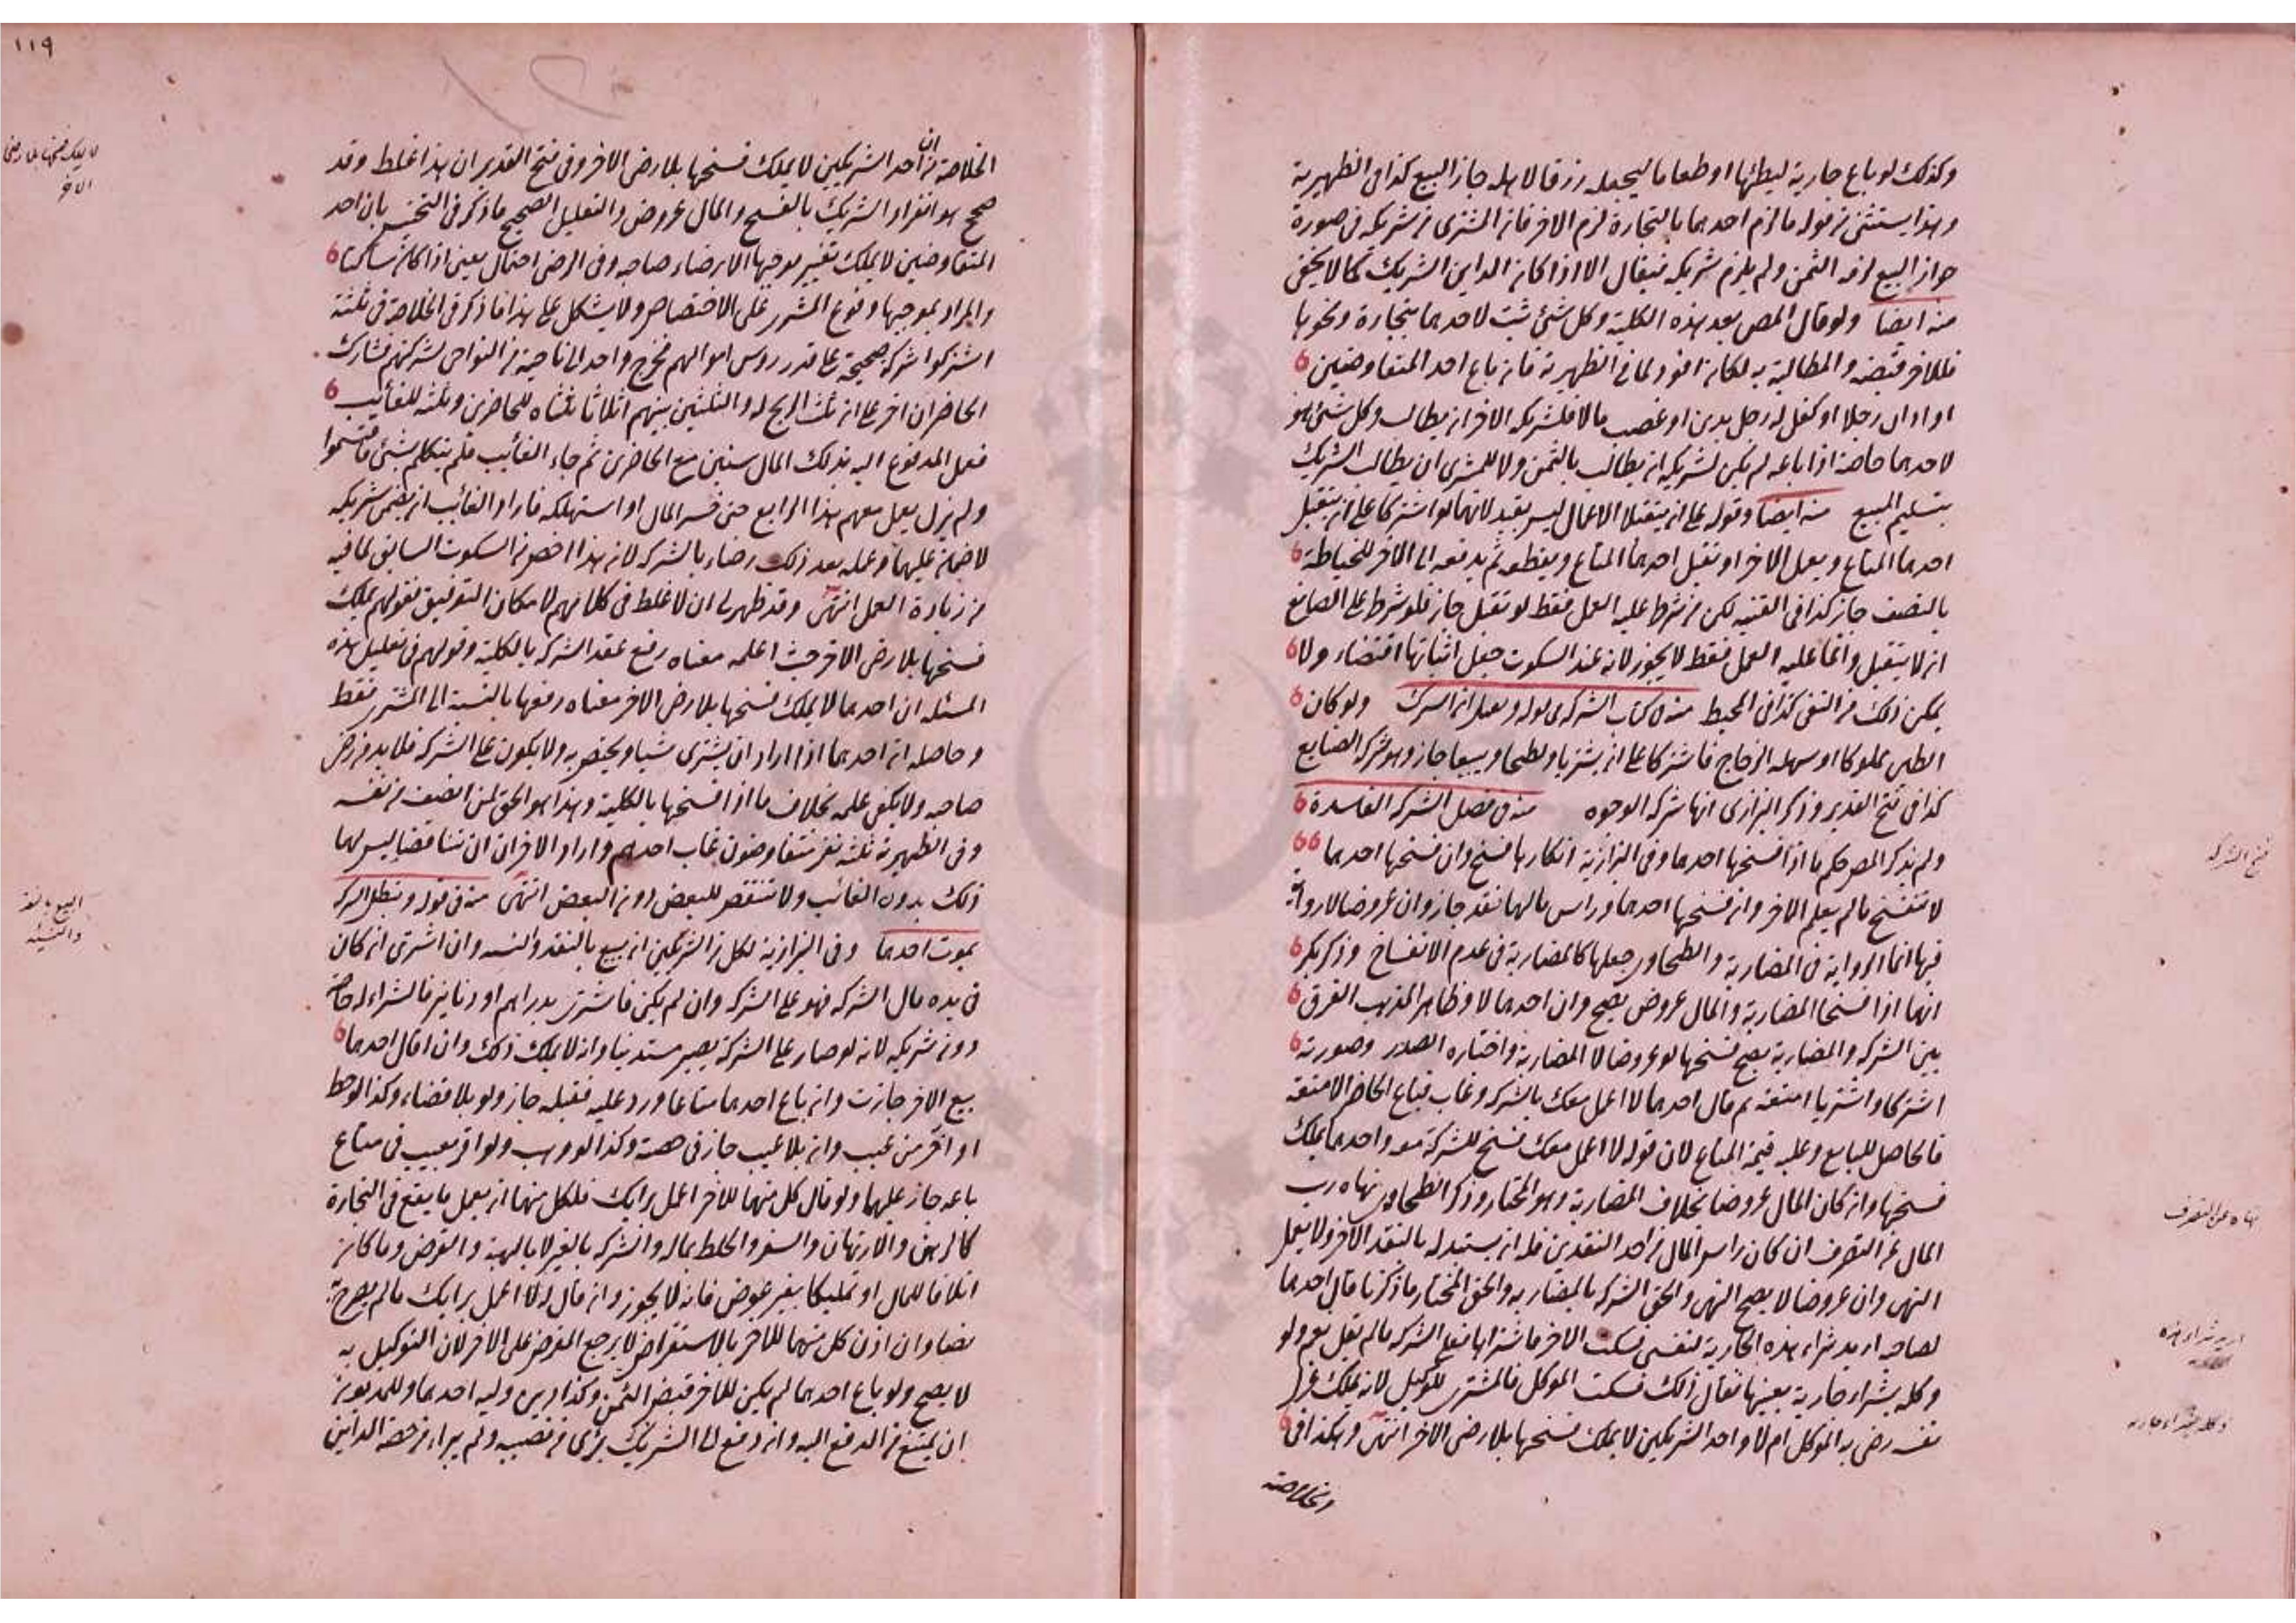 وكذلك لو باع جارية ليطئها او طعاما ليجعله رزقا لاهله جاز البيع كذا فى الظهيرية
وهذا يستثنى من قوله ما لزم احدهما بالتجارة لزم الاخر فان المشترى من شريكه فى صورة
جواز البيع لزمه الثمن ولم يلزم شريكه فيقال الا اذا كان الداين الشريك كما لا يخفى
منه ايضا ولو قال المص بعد هذه الكلية وكل شئ ثبت لاحدهما بتجارة ونحوها
فللاخر قبضه والمطالبة به لكان افود لما فى الظهيرية فان باع احد المتفاوضين
او ادان رجلا او كفل له رجل بدين او غصب مالا فلشريكه الاخر ان يطالب وكل شئ هو
لاحدهما خاصة اذا باعه لم يكن لشريكه ان يطالب بالثمن ولا للمشترى ان يطالب الشريك
بتسليم المبيع منه ايضا وقوله على ان يتقبلا الاعمال ليس بقيد لانهما لو اشتركا على ان يتقبل
احدهما المتاع ويعمل الاخر او تقبل احدهما المتاع ويقطعه ثم يدفعه الى الاخر للخياطة
بالنصف جاز كذا فى القنية لكن من شرط عليه العمل فقط لو تقبل جاز فلو شرط على الصانع
ان لا يتقبل وانما عليه العمل فقط لا يجوز لانه عند السكوت جعل اثباتها اقتضاء ولا
يمكن ذلك مع النفى كذا فى المحيط منه كتاب الشركة ولو كان
الطين مملوكا او سهلة الزجاج فاشتركا على ان يشتريا ويطبخا ويبيعا جاز وهو شركة الصنايع
كذا فى فتح القدير وذكر البزازى انها شركة الوجوه منه فى فصل الشركة الفاسدة
ولم يذكر المص حكم ما اذا فسخها احدهما وفى البزازية انكارها فسخ وان فسخها احدهما
لا تنفسخ ما لم يعلم الاخر وان فسخها احدهما ورأس مالها نقد جاز وان عروضا لا رواية
فيها انما الرواية فى المضاربة والطحاوى جعلها كالمضاربة فى عدم الانفساخ وذكر بكر
انهما اذا فسخا المضاربة والمال عروض يصح وان احدهما لا وظاهر المذهب الفرق
بين الشركة والمضاربة يصح فسخها لو عروضا لا المضاربة واختاره الصدر وصورته
اشتركا واشتريا امتعة ثم قال احدهما لا اعمل معك بالشركة وغاب فباع الحاضر الامتعة
فالحاصل للبايع وعليه قيمة المتاع لان قوله لا اعمل معك فسخ للشركة معه واحدهما يملك
فسخها وان كان المال عروضا بخلاف المضاربة وهو المختار وذكر الطحاوى نهاه رب
المال عن التصرف ان كان رأس المال من احد النقدين فله ان يستبدله بالنقد الاخر ولا يعمل
النهى وان عروضا لا يصح النهى والحق الشركة بالمضاربة والحق المختار ما ذكرنا قال احدهما
لصاحبه اريد شراء هذه الجارية لنفسى فسكت الاخر فاشتراها فعلى الشركة ما لم يقل نعم ولو
وكله بشراء جارية بعينها فقال ذلك فسكت الموكل فالمشترى للوكيل لانه يملك عزل
نفسه رضى به الموكل ام لا واحد الشريكين لا يملك فسخها بلا رضى الاخر انتهى وهكذا فى
الخلاصة
فسخ الشركة
نهاه عن التصرف
اريد شراء هذه
وكله بشراء جارية
١١٩
الخلاصة من ان احد الشريكين لا يملك فسخها بلا رضى الاخر وفى فتح القدير ان هذا غلط وقد
صحح هو انفراد الشريك بالفسخ والمال عروض والتعليل الصحيح ما ذكر فى التجنيس بان احد
المتفاوضين لا يملك تغيير موجبها الا برضاء صاحبه وفى الرضى احتمال يعنى اذا كان ساكتا
والمراد بموجبها وقوع المشترى على الاختصاص ولا يشكل على هذا ما ذكر فى الخلاصة فى ثلثة
اشتركوا شركة صحيحة على قدر رؤس اموالهم فخرج واحد الى ناحية من النواحى لشركتهم فشارك
الحاضران اخر على ان ثلث الربح له والثلثين بينهم اثلاثا ثلثاه للحاضرين وثلثه للغائب
فعمل المدفوع اليه بذلك المال سنين مع الحاضرين ثم جاء الغائب فلم يتكلم بشئ فاقتسموا
ولم يزل يعمل معهم هذا الرابع حتى خسر المال او استهلكه فاراد الغائب ان يضمن شريكه
لا ضمان عليهما وعمله بعد ذلك رضاء بالشركة لان هذا اخص من السكوت السابق لما فيه
من زيادة العمل انتهى وقد ظهر لى ان لا غلط فى كلامهم لامكان التوفيق فقولهم يملك
فسخها بلا رضى الاخر حيث اعلمه معناه رفع عقد الشركة بالكلية وقولهم فى تعليل هذه
المسئلة ان احدهما لا يملك فسخها بلا رضى الاخر معناه رفعها بالنسبة الى المشترى فقط
وحاصله ان احدهما اذا اراد ان يشترى شيا ويختص به ولا يكون على الشركة فلا بد من رضى
صاحبه ولا يكفى علمه بخلاف ما اذا فسخها بالكلية وهذا هو الحق لمن انصف من نفسه
وفى الظهيرية ثلثة نفر متفاوضون غاب احدهم واراد الاخران ان يتناقضا ليس لهما
ذلك بدون الغائب ولا تنتقض للبعض دون البعض انتهى منه فى قوله وتبطل الشركة
بموت احدهما وفى البزازية لكل من الشريكين ان يبيع بالنقد والنسيئة وان اشترى ان كان
فى يده مال الشركة فهو على الشركة وان لم يكن فاشترى بدراهم او دنانير فالشراء له خاصة
دون شريكه لانه لو صار على الشركة يصير مستدينا وانه لا يملك ذلك وان اقال احدهما
بيع الاخر جازت وان باع احدهما متاعا ورد عليه فقبله جاز ولو بلا قضاء وكذا لو حط
او اخر من عيب وان بلا عيب جاز فى حصته وكذا لو وهب ولو اقر بعيب فى متاع
باعه جاز عليهما ولو قال كل منهما للاخر اعمل برايك فلكل منهما ان يعمل ما يقع فى التجارة
كالرهن والارتهان والسفر والخلط بماله والشركة بالغير لا بالهبة والقرض وما كان
اتلافا للمال او تمليكا بغير عوض فانه لا يجوز وان قال له اعمل برايك ما لم يصرح به
نصا وان اذن كل منهما للاخر بالاستقراض لا يرجع المقرض على الاخر لان التوكيل به
لا يصح ولو باع احدهما لم يكن للاخر قبض الثمن وكذا دين وليه احدهما وللمديون
ان يمتنع من الدفع اليه وان دفع الى الشريك برئ من نصيبه ولم يبراء من حصة الداين
لا يملك فسخها بلا رضى
الاخر
البيع بالنقد
والنسيئة